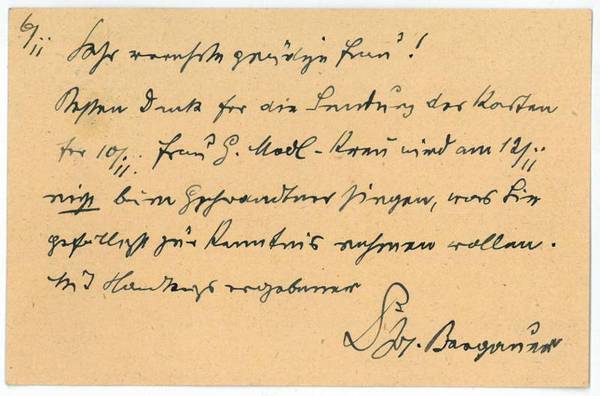 6/II
Sehr verehrte gnädige Frau!
Besten Dank for die Sendung der Karten
for 10/II. Frau G. Modl - wird am 12/II
nicht beim Gschwandtner singen, was Sie
gefälligst zur Kenntnis nehmen wollen.
Mit Handkuss ergebener
Jos. Bergauer